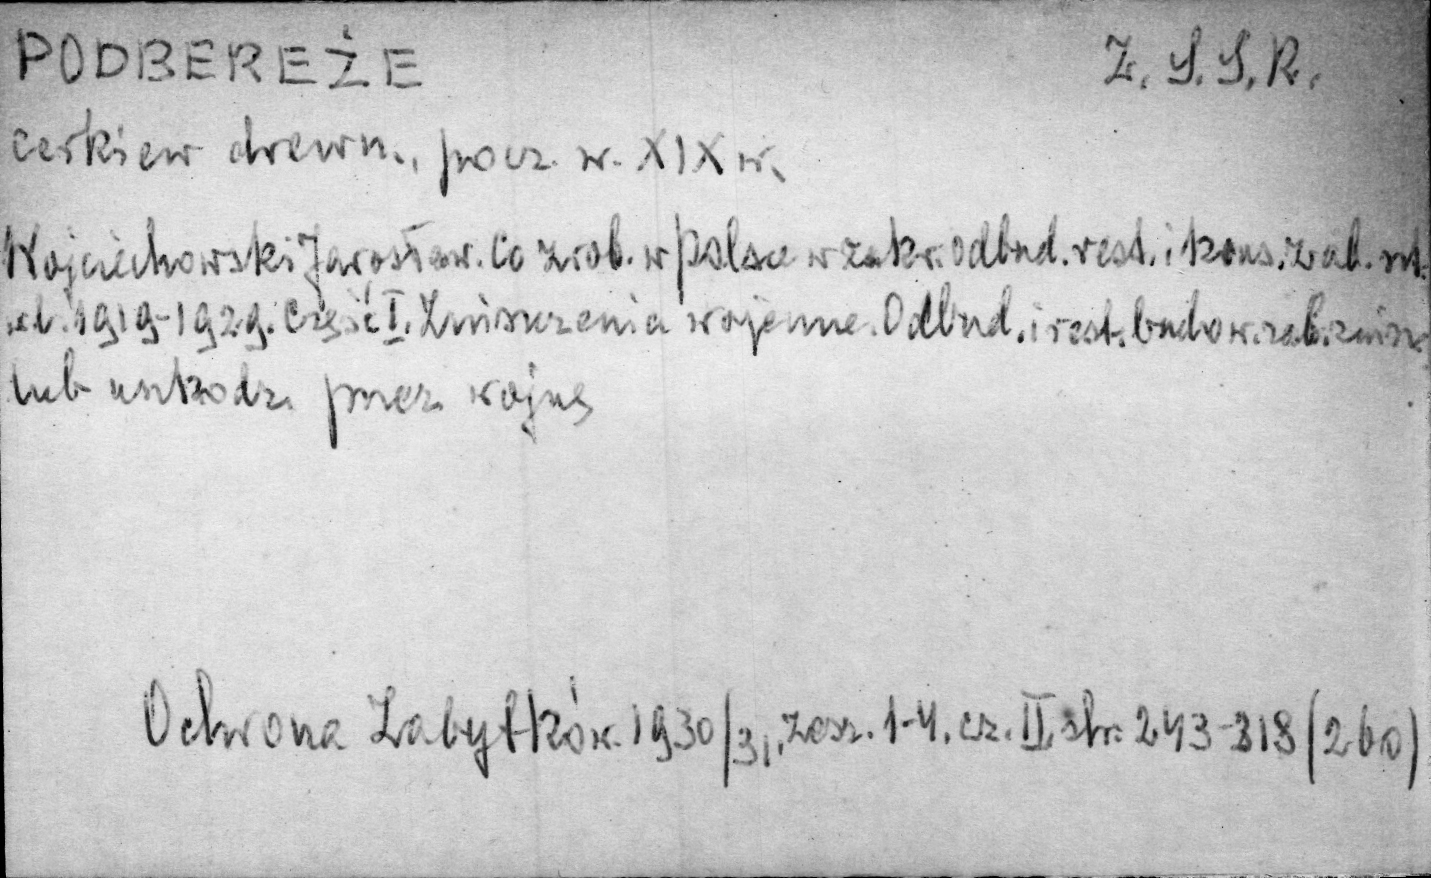 PODBEREŻE Z. S. S. R.
cerkiew drewn., pocz. w. XIX w.
Wojciechowski Jarosław. Co zrob. w Polsce w zakr. odbud. rest. i kons. zab. szt.
w l. 1919-1929. Część I. Zniszczenia wojenne. Odbud. i rest. budow. zab. zniszcz.
lub uszkodz. przez wojnę
Ochrona Zabytków. 1930/31, zesz. 1-4, cz. II, str. 243-318 (260)